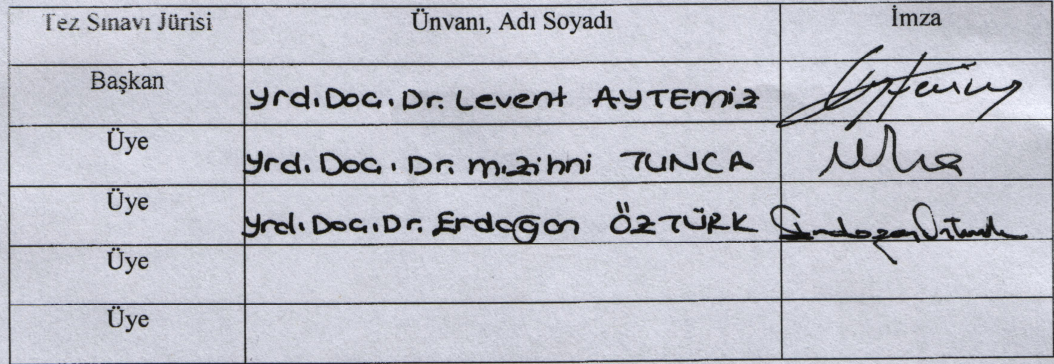 Tez Sınavı Jürisi Ünvanı, Adı Soyadı İmza
Başkan Yrd.Doç.Dr. Levent AYTEMİZ
Üye Yrd.Doç.Dr. M.Zihni TUNCA
Üye Yrd.Doç.Dr. Erdoğan ÖZTÜRK Erdoğan Öztürk
Üye
Üye